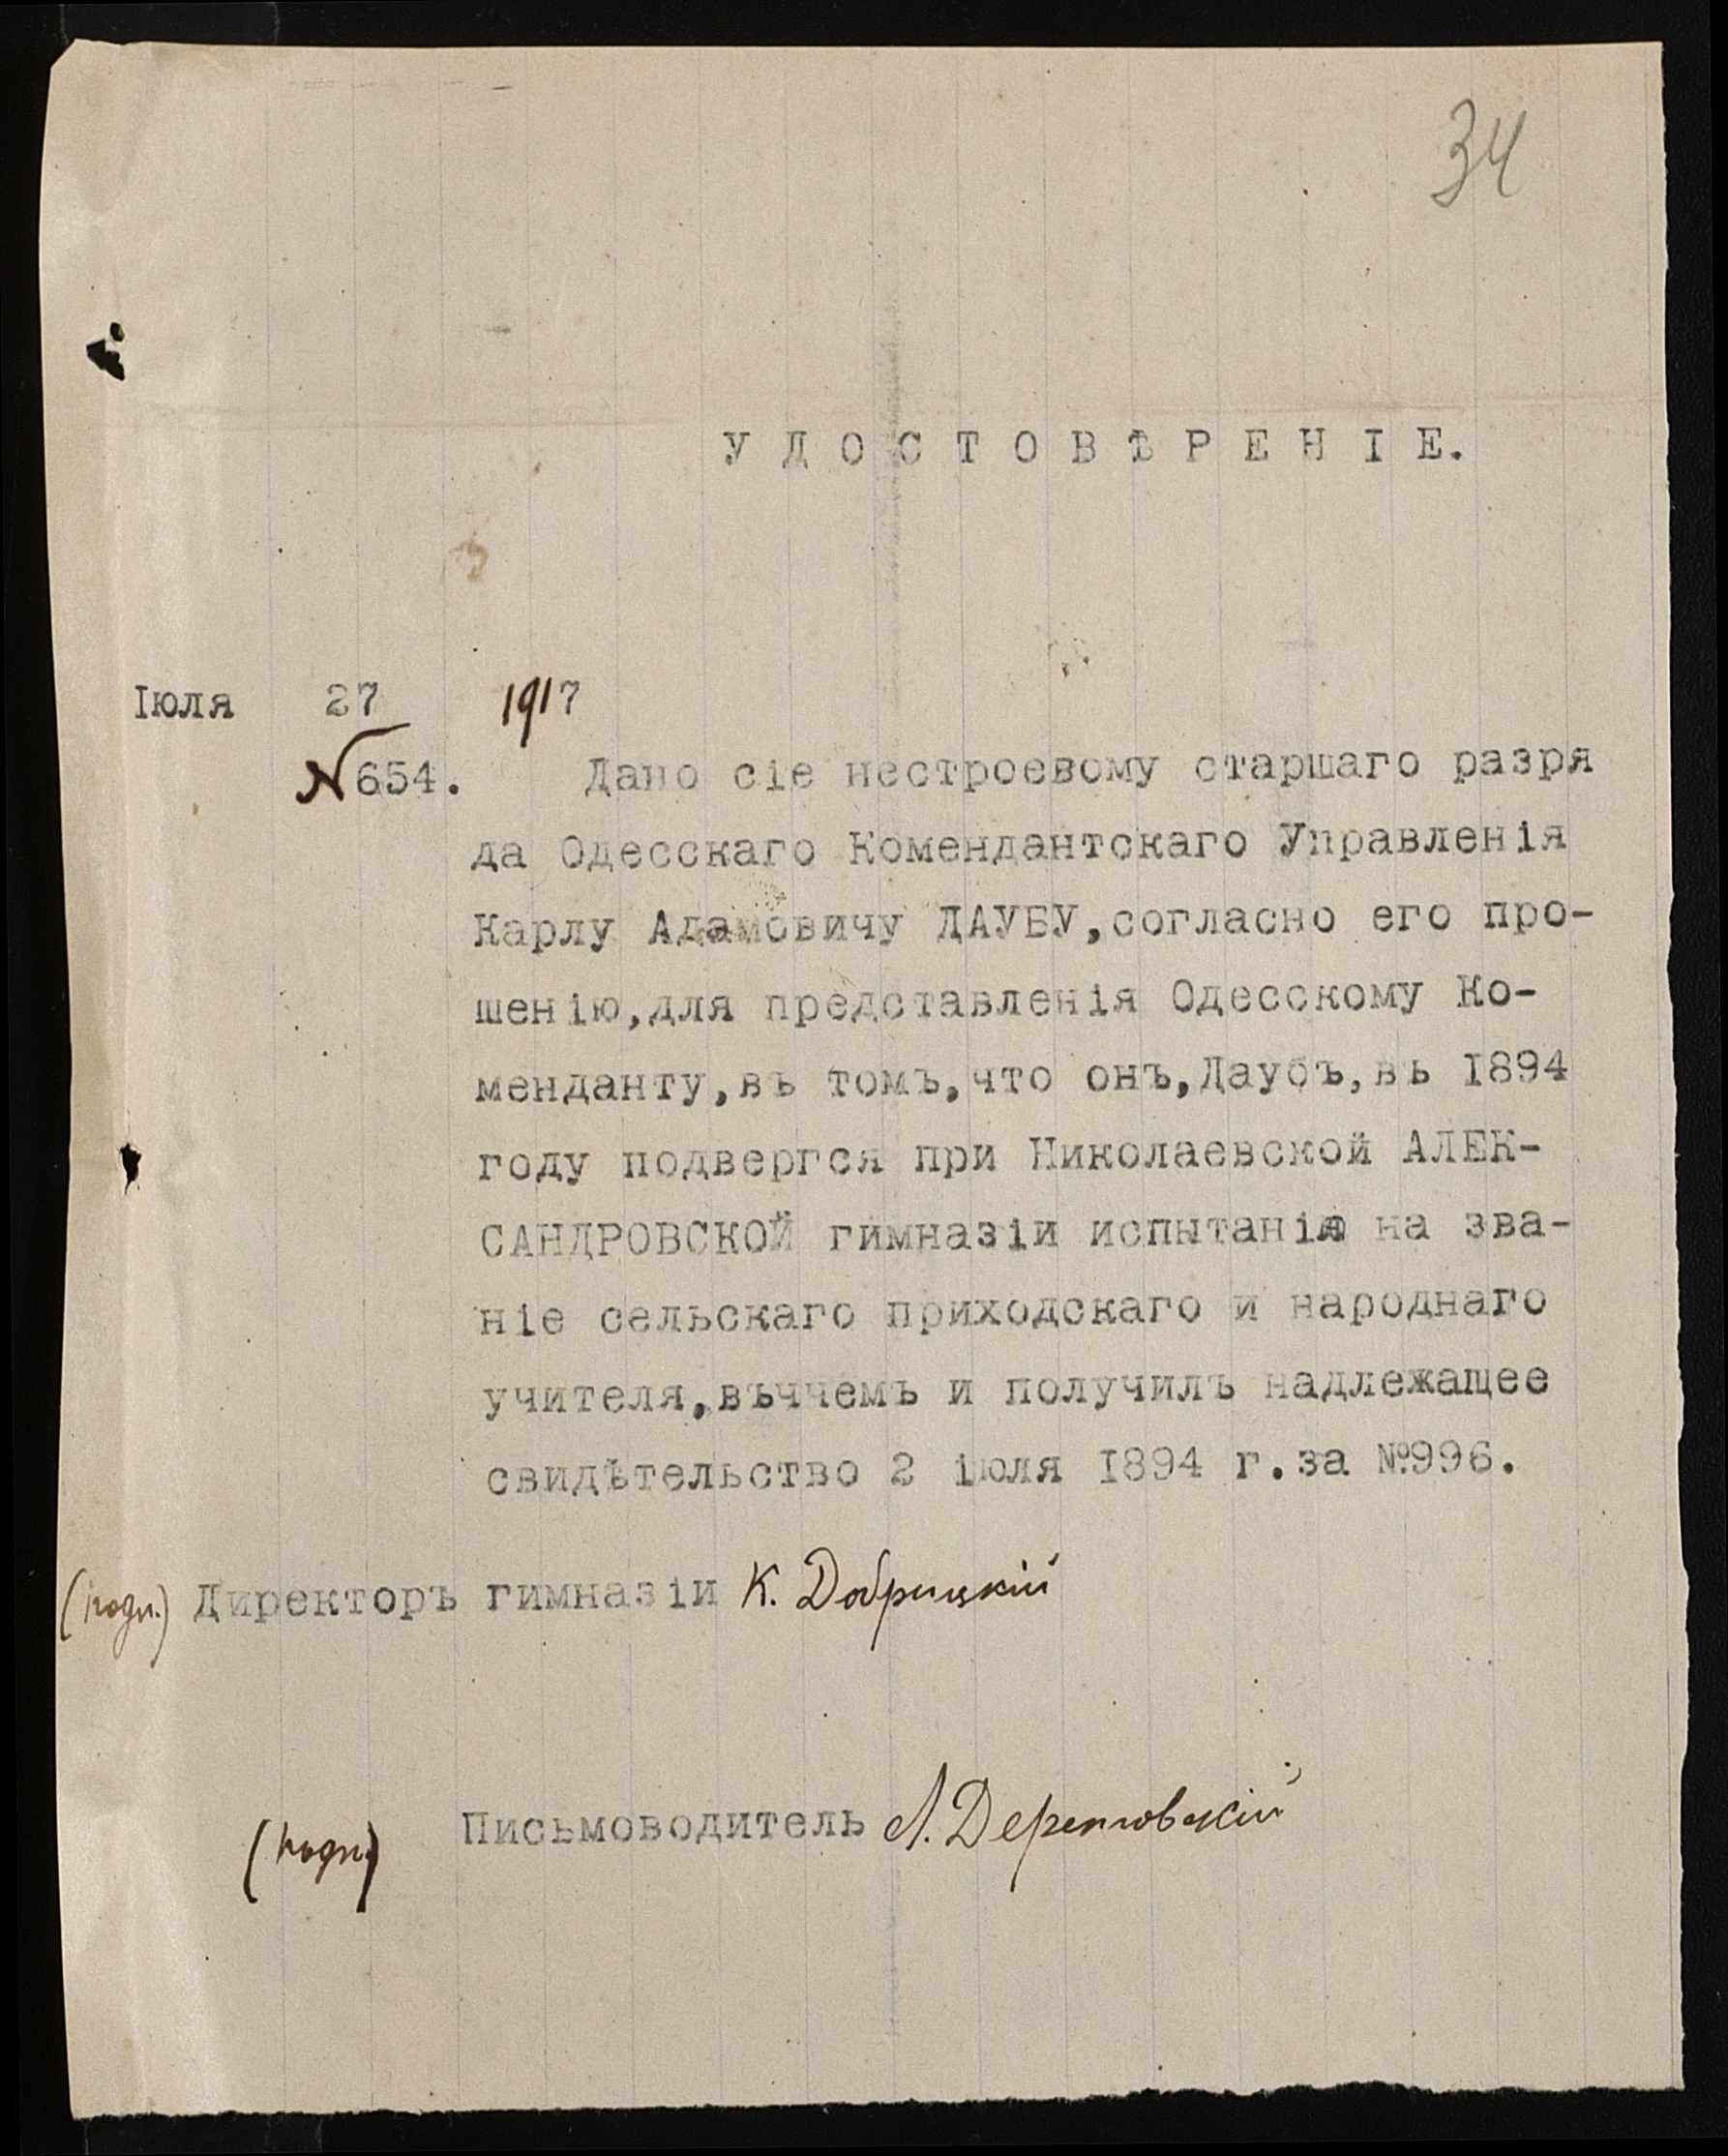 34
УДОСТОВѢРЕНІЕ.
Іюля 27 1917
№654.
Дано сіе нестроевому старшаго разря
да Одесскаго Комендантскаго Управленія
Карлу Адамовичу ДАУБУ,согласно его про-
шенію,для представленія Одесскому Ко-
менданту,въ томъ,что онъ,Даубъ,въ 1894
году подвергся при Николаевской АЛЕК-
САНДРОВСКОЙ гимназіи испытанію на зва-
ніе сельскаго приходскаго и народнаго
учителя,въччемъ и получилъ надлежащее
свидѣтельство 2 іюля 1894 г.за №996.
(подп.) Директоръ гимназіи К.
(подп.) Письмоводитель Л.